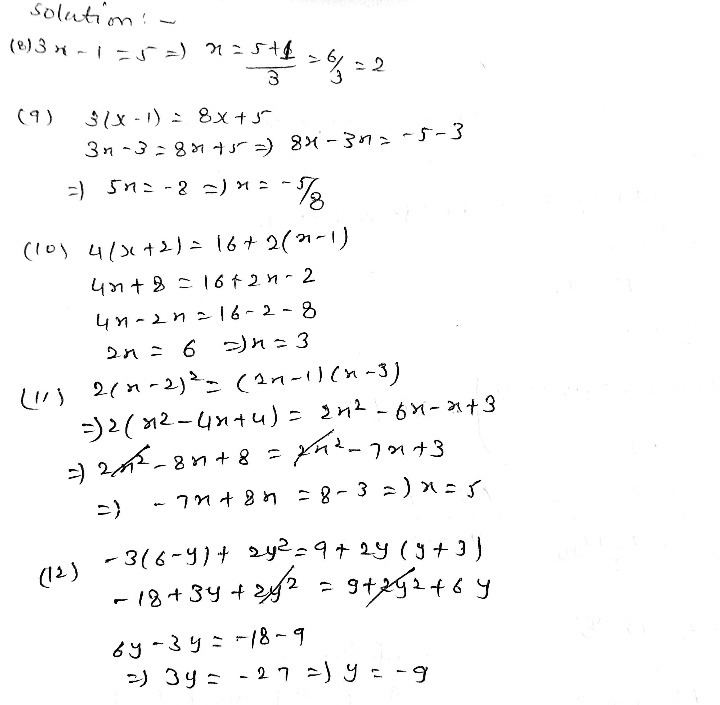 Solution: -
(8) 3x - 1 = 5 => x = (5+1)/3 = 6/3 = 2
(9) 3(x-1) = 8x+5
3x-3 = 8x+5 => 8x-3x = -5-3
=> 5x = -8 => x = -5/8
(10) 4(x+2) = 16+2(x-1)
4x+8 = 16+2x-2
4x-2x = 16-2-8
2x = 6 => x = 3
(11) 2(x-2)² = (2x-1)(x-3)
=> 2(x2-4x+4) = 2x²-6x-x+3
=> 2x²-8x+8 = 2x²-7x+3
=> -7x+8x = 8-3 => x = 5
(12) -3(6-y)+2y² = 9+2y(y+3)
-18+3y+2y² = 9+2y2+6y
6y-3y = -18-9
=> 3y = -27 => y = -9